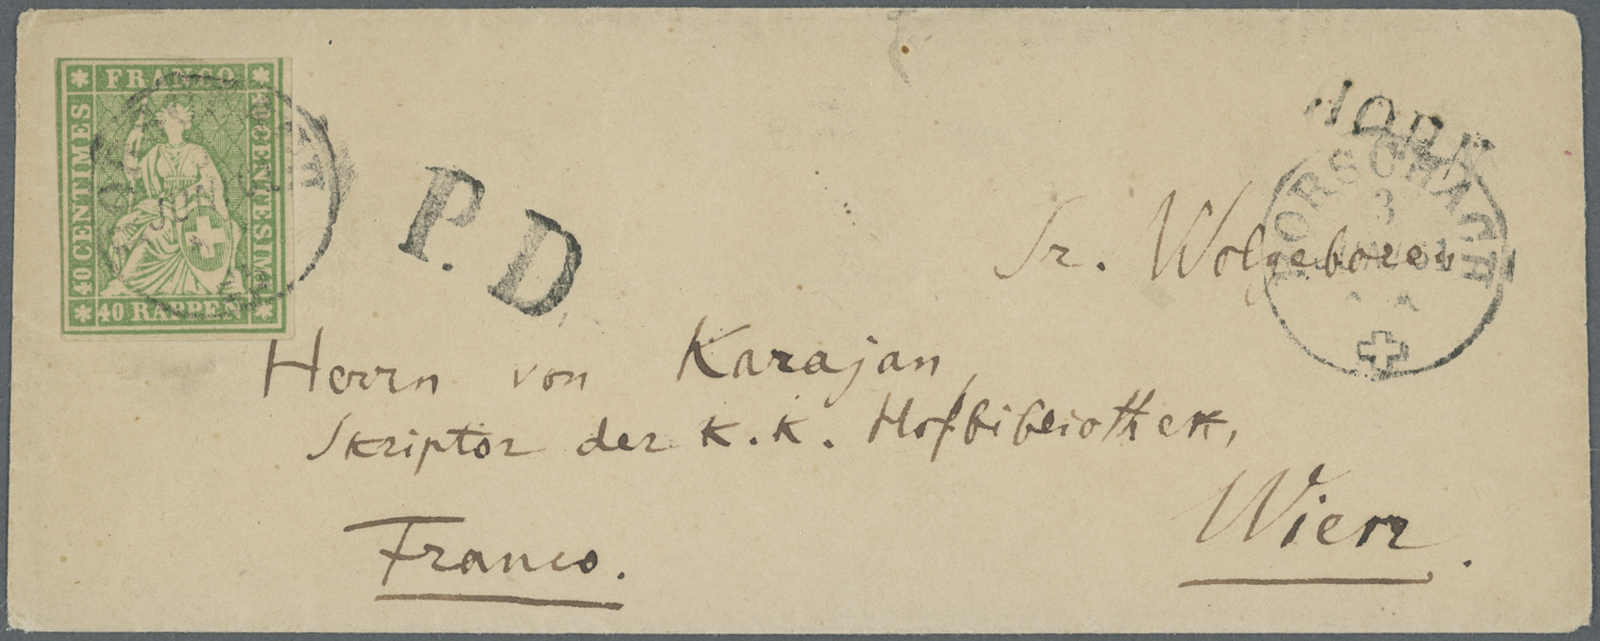 FRANCO
40 CENTIMES
40 CENTESIMI
40 RAPPEN
JUN
P.D.
RORSCHACH
3
Sr. Wolgeboren
Herrn von Karajan,
Skriptor der K. K. Hofbibliothek,
Wien.
Franco.